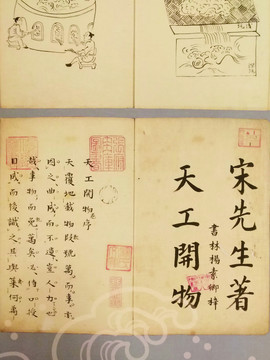 宋先生著
天工開物
書林楊素卿梓
天工開物序
天覆地載物數號萬而事亦
因之曲成而不遺豈人力也
哉事物而既萬矣必待口授
目成而後識之其與幾何萬